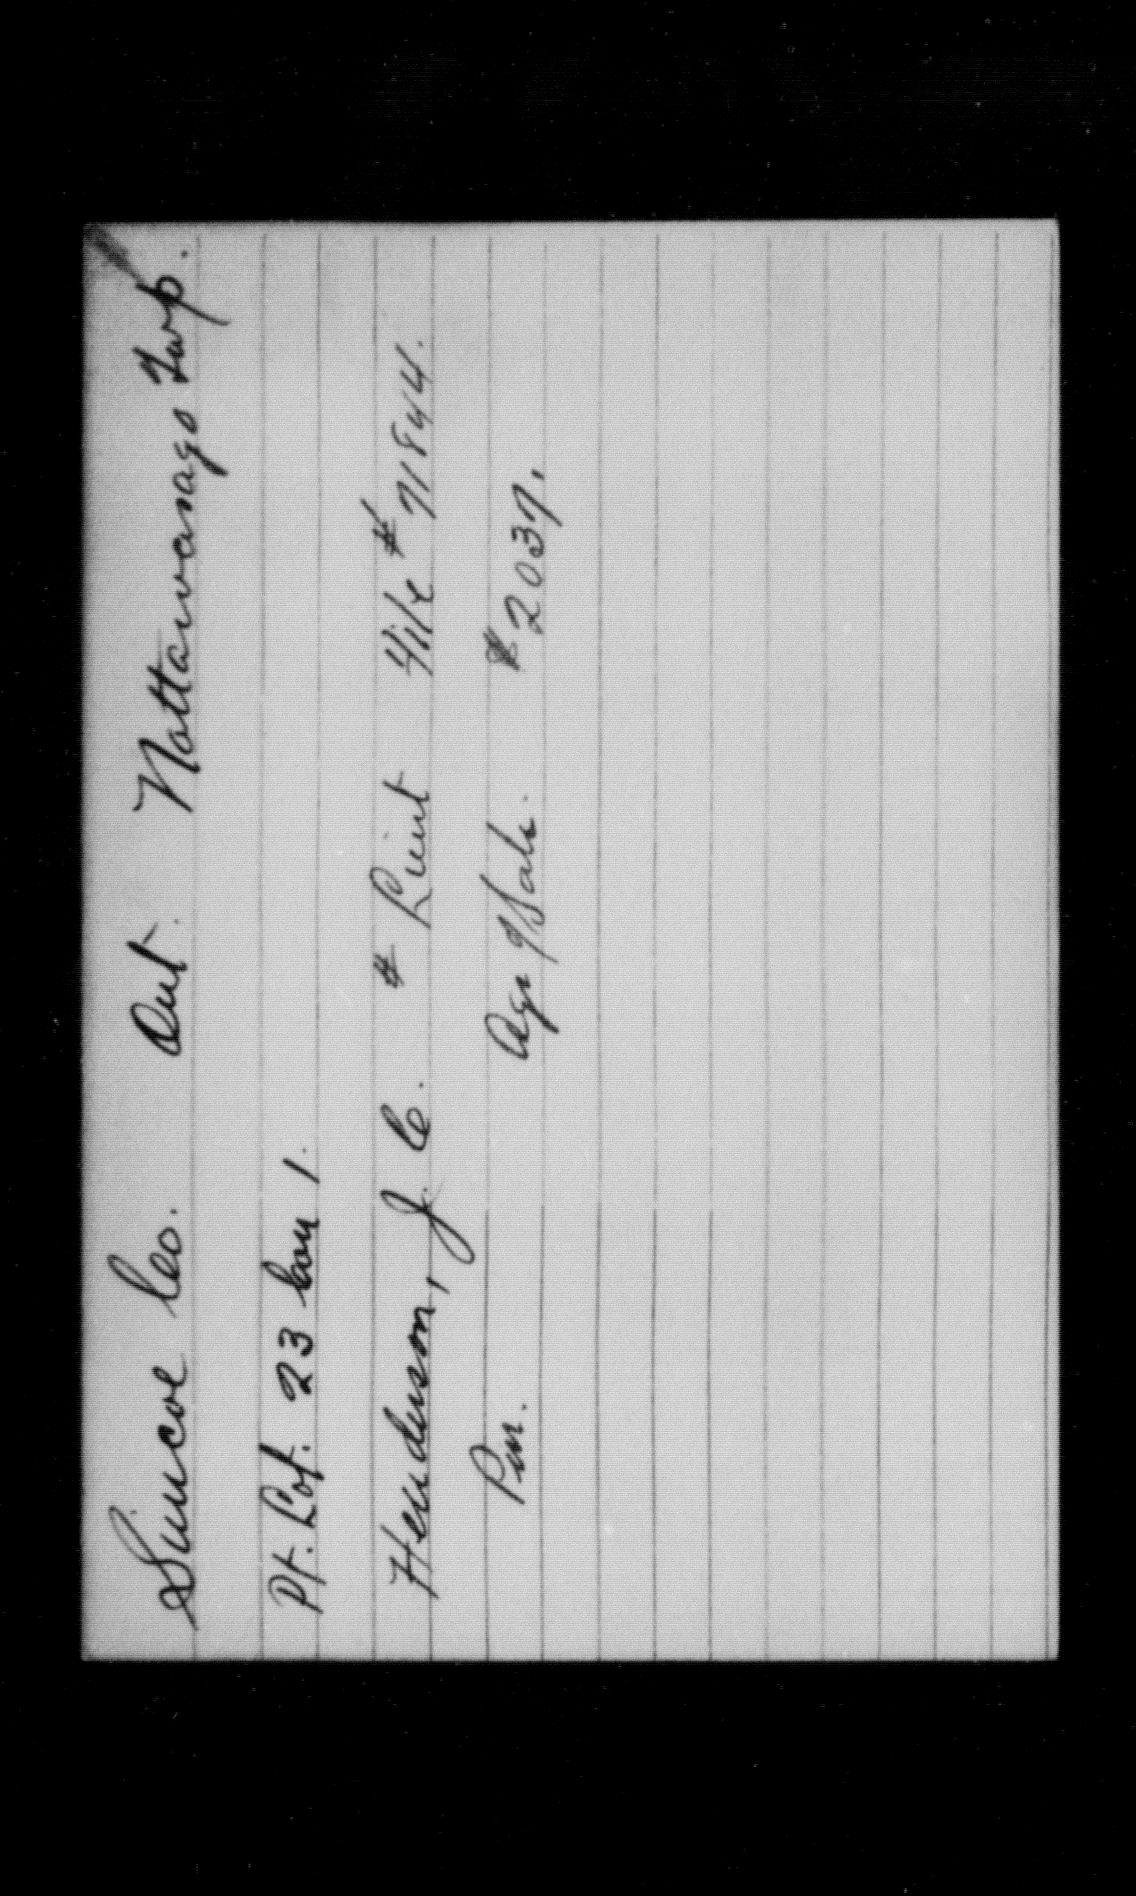 Simcoe Co. Ont. Nottawasaga Twp.
Pt. Lot. 23 Con 1.
Henderson, J. C. # Lieut File # 71844.
Pur. Agr of Sale. # 2037.